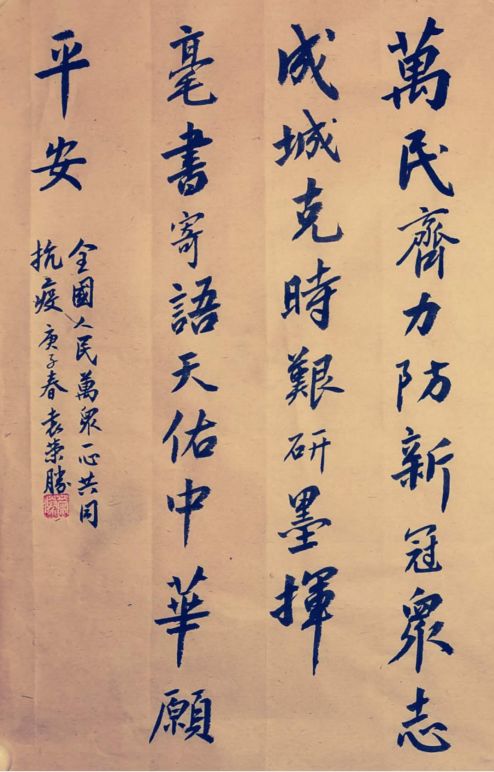 萬民齊力防新冠衆志
成城克時艱研墨揮
毫書寄語天佑中華願
平安
全國人民萬衆一心共同
抗疫庚子春袁榮勝